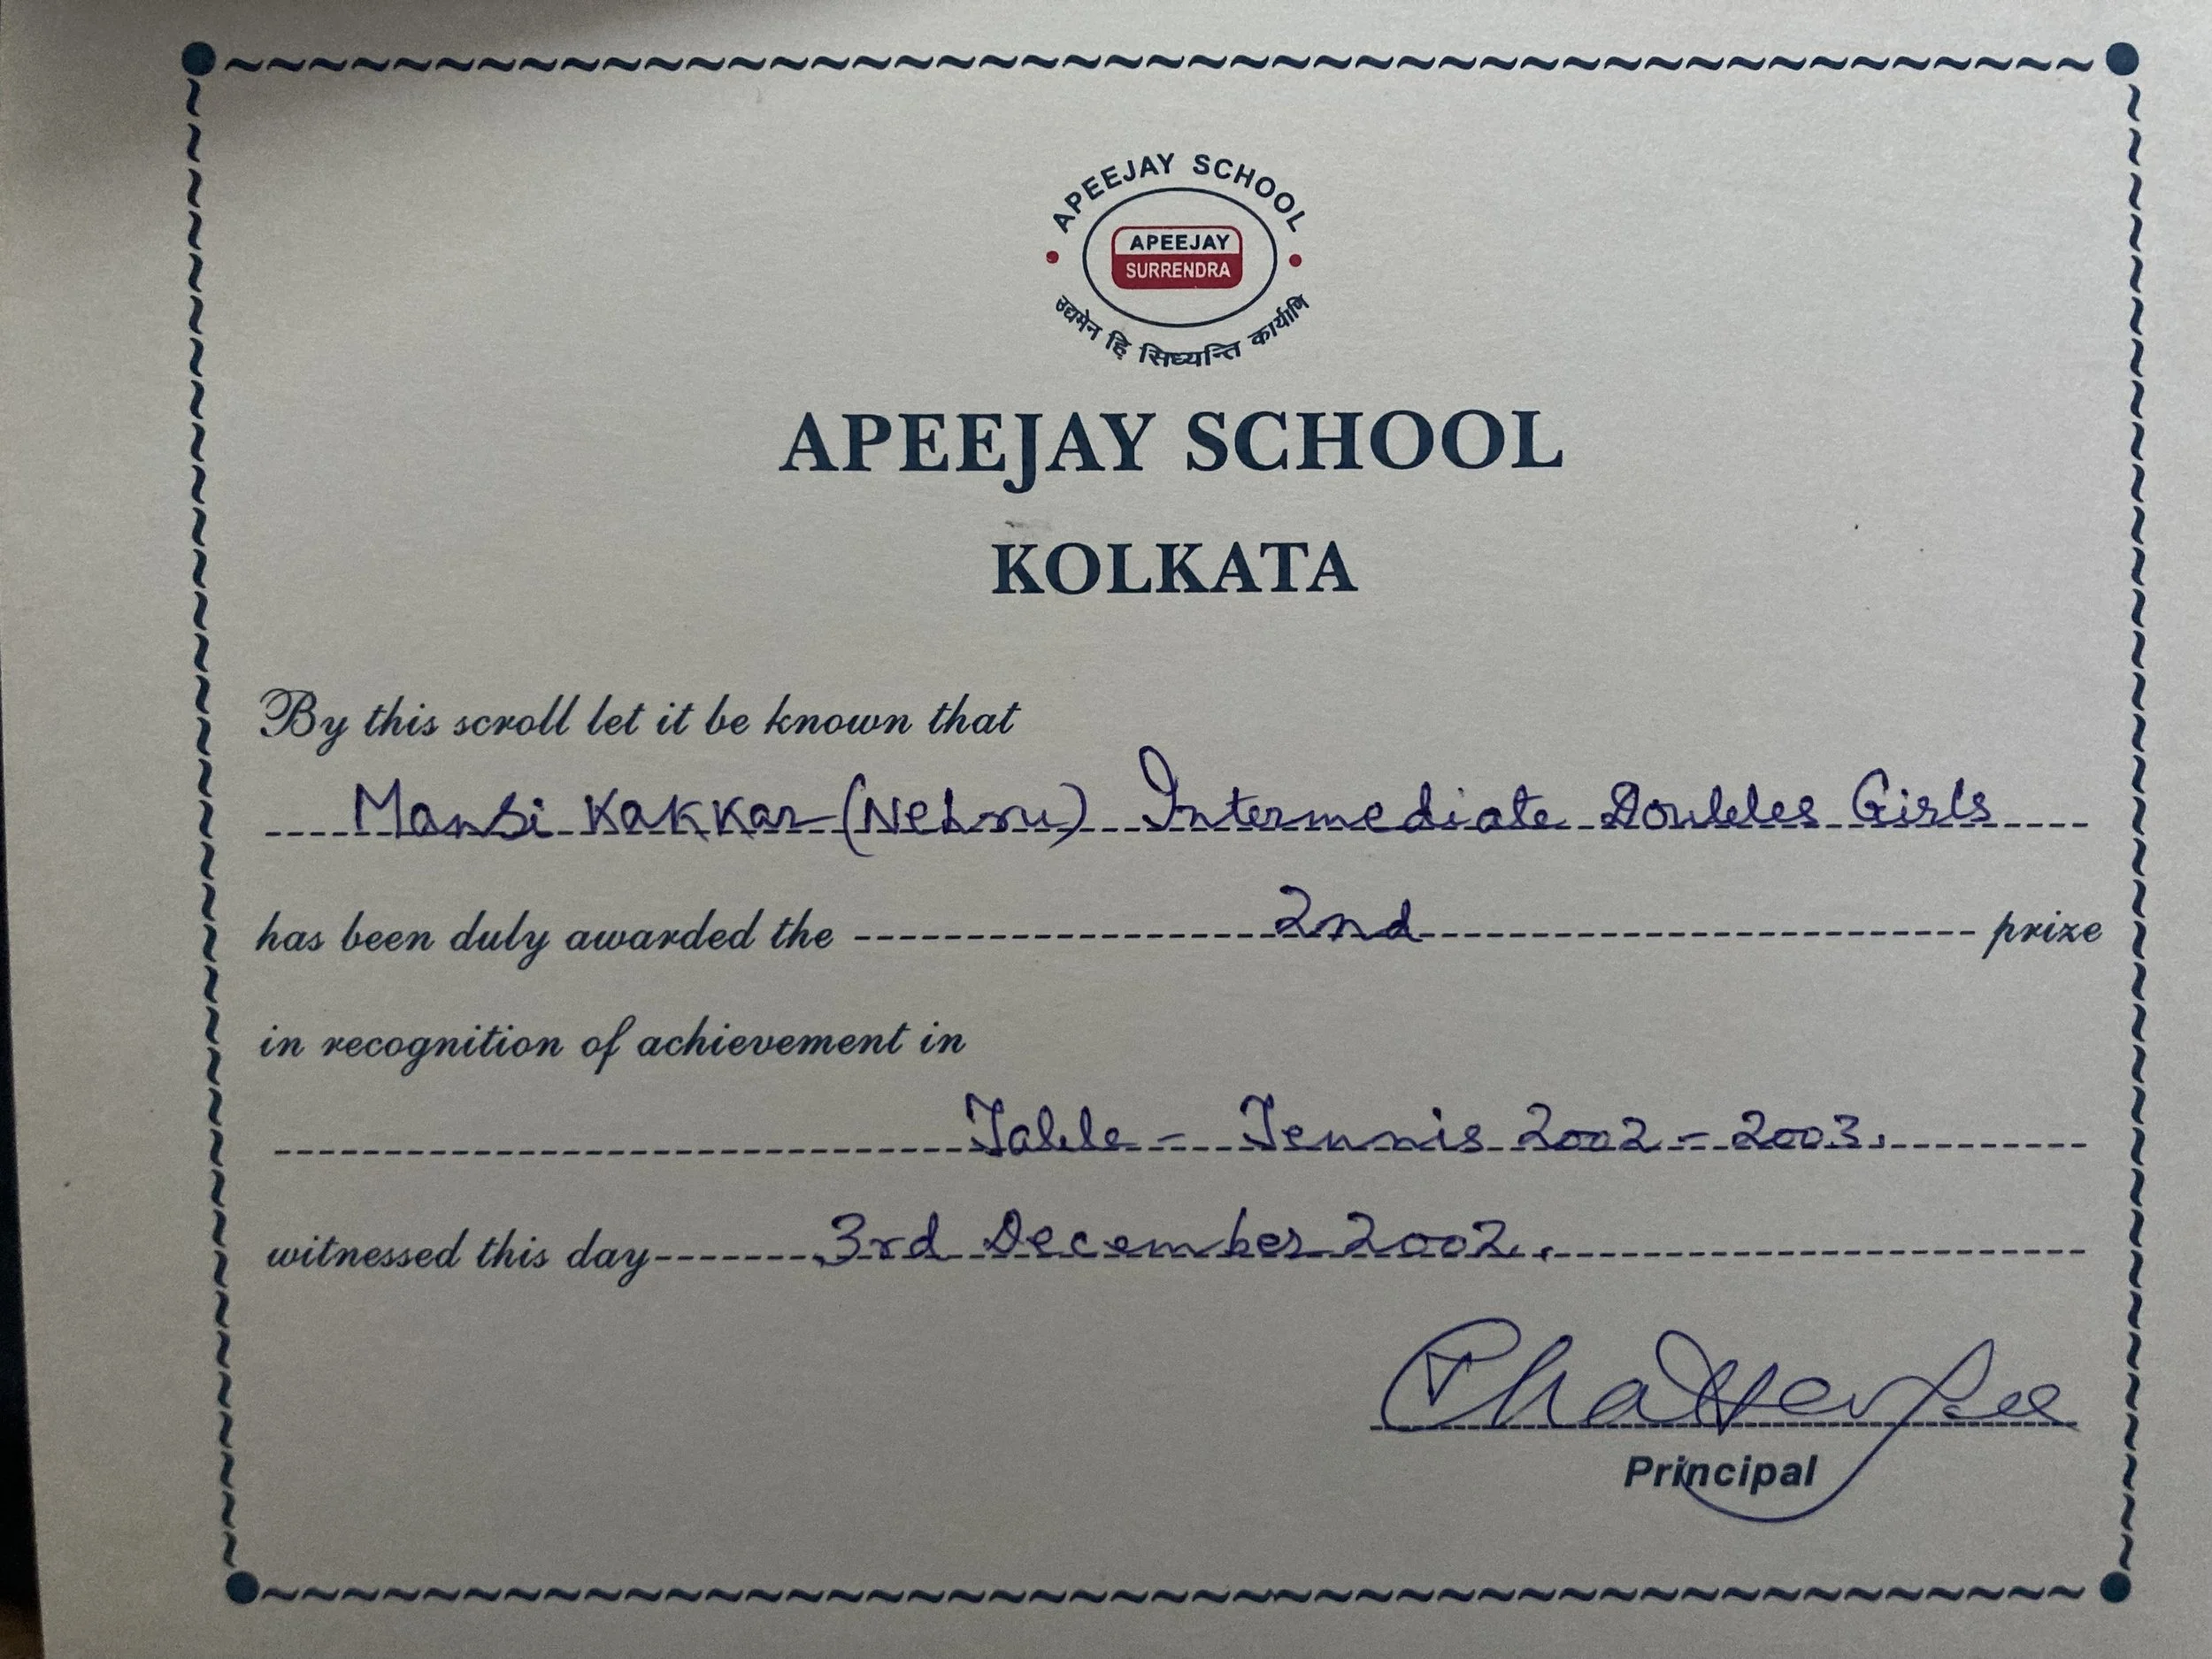 APEEJAY SCHOOL
APEEJAY
SURRENDRA
उद्यमेन हि सिध्यन्ति कार्याणि
APEEJAY SCHOOL
KOLKATA
By this scroll let it be known that
Mansi Kakkar (Nehru) Intermediate Doubles Girls
has been duly awarded the 2nd prize
in recognition of achievement in
Table - Tennis 2002 - 2003.
witnessed this day 3rd December 2002.
Chatterjee
Principal